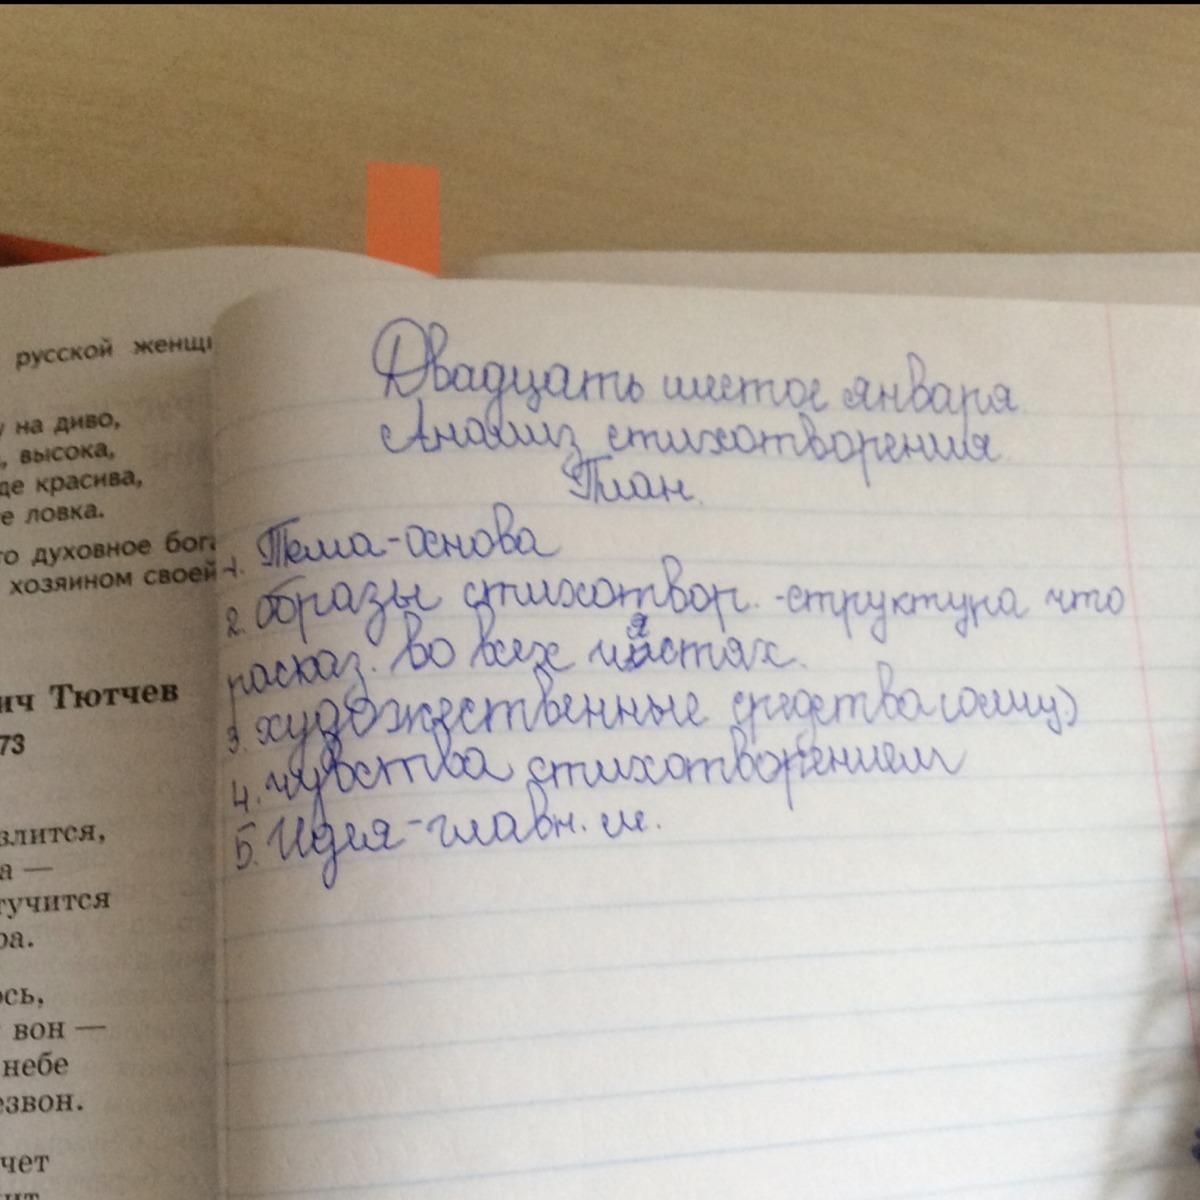 русской женщи
у на диво,
, высока,
де красива,
е ловка.
го духовное бога
хозяином своей
ич Тютчев
73
злится,
а —
тучится
ра.
ось,
вон —
небе
езвон.
чет
Двадцать шестое января.
Анализ стихотворения.
План.
1. Тема-основа
2. образы стихотвор. -структура что
расказ. во всех частях.
3. художественные средства
4. чувства стихотворением
5. Идея-главн. м.